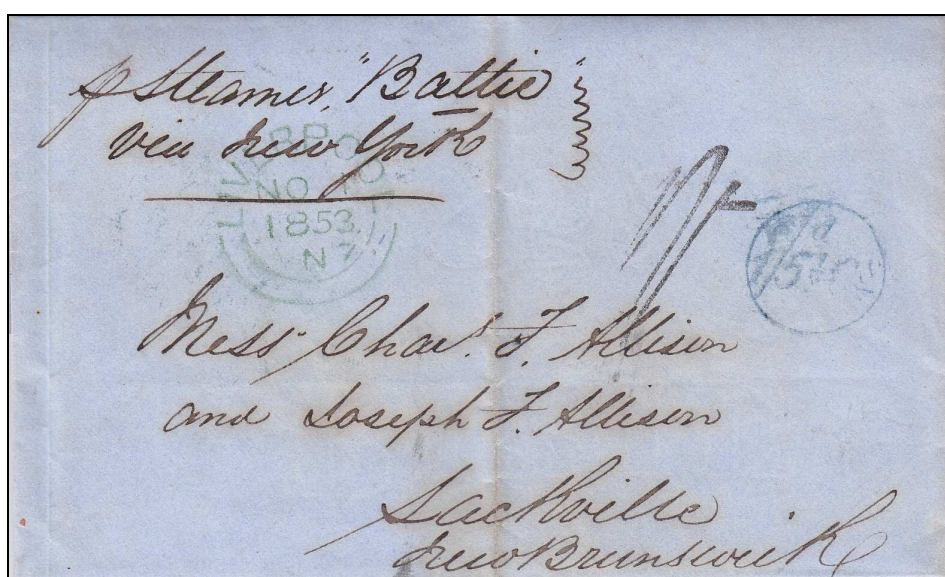 p Steamer, "Baltic"
via New York
LIVERPOO
NO 10
1853
N Z
1/-
Messrs Chas. F. Allison
and Joseph F. Allison
Sackville
New Brunswick